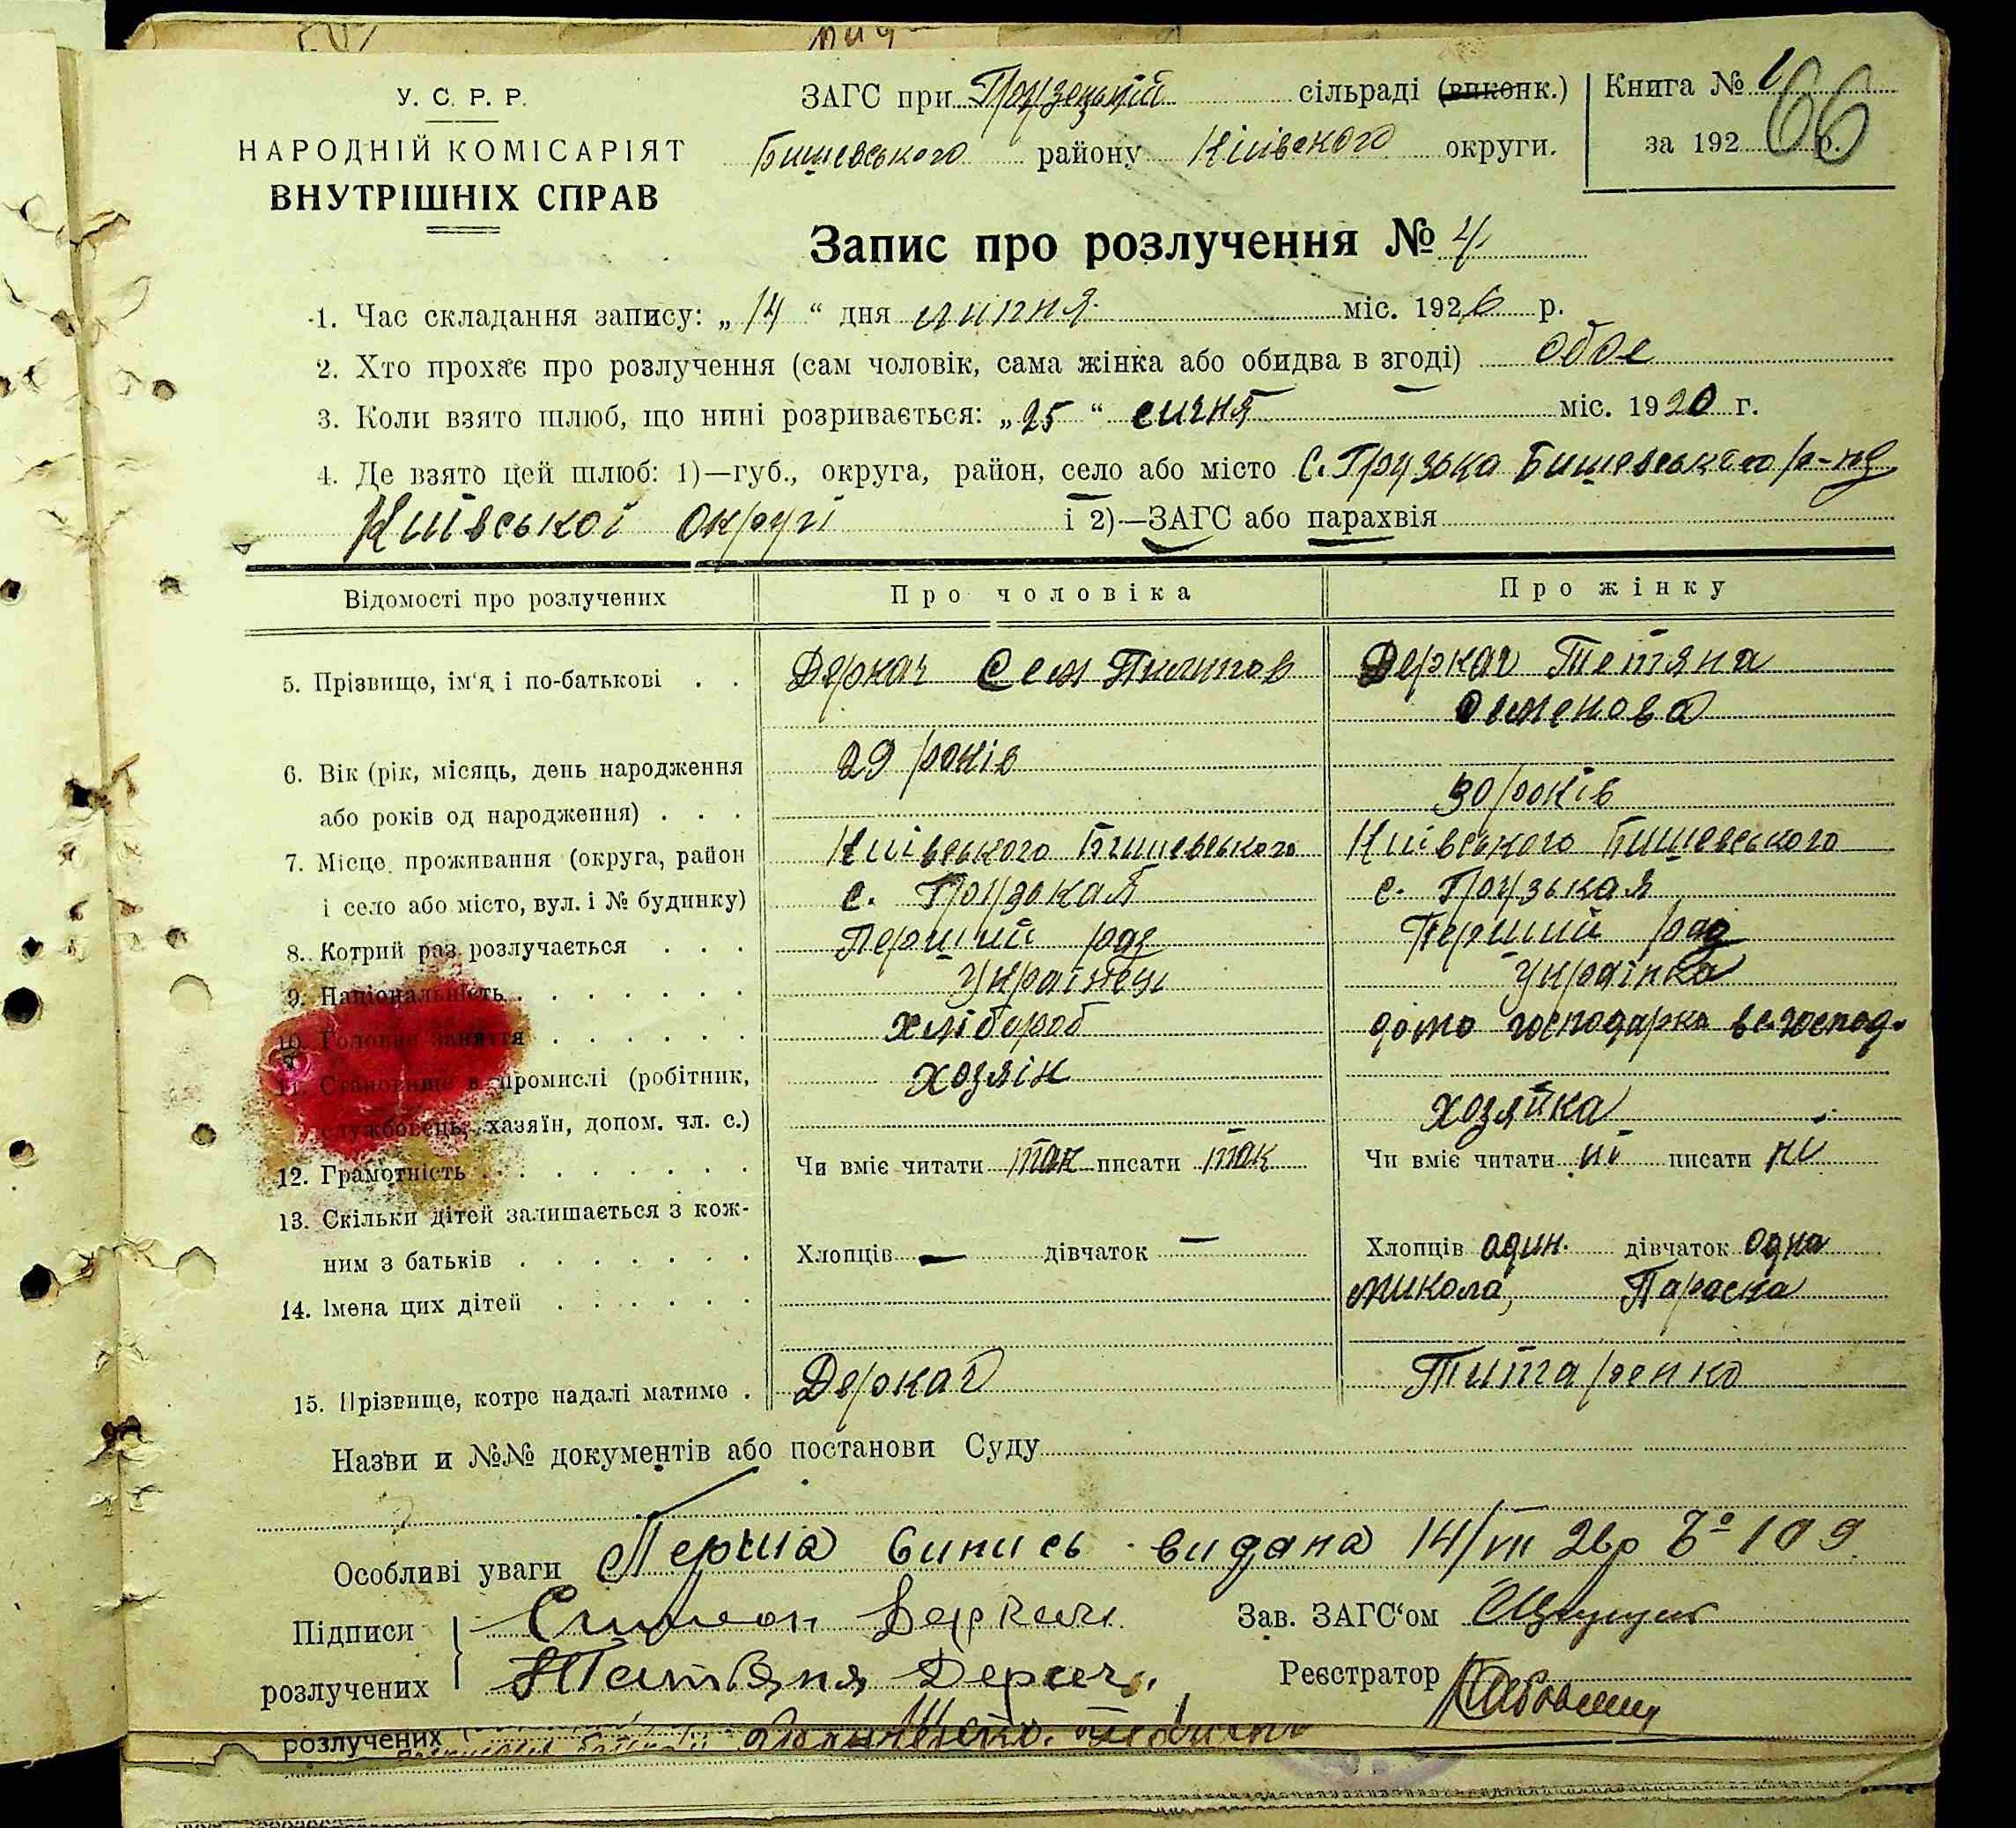 У. С. Р. Р.
НАРОДНІЙ КОМІСАРІЯТ
ВНУТРІШНІХ СПРАВ
ЗАГС при Грузецькій сільраді (виконк.)
Бишевського району Київского округи.
Книга № 1
за 192 р.
66
Запис про розлучення № 4
1. Час складання запису: „ 14 “ дня липня міс. 1926 р.
2. Хто прохає про розлучення (сам чоловік, сама жінка або обидва в згоді) обое
3. Коли взято шлюб, що нині розривається: „ 25 “ сичня міс. 1920 г.
4. Де взято цей шлюб: 1)—губ., округа, район, село або місто С. Грузька Бишевського р-ну
Київської округі і 2)—ЗАГС або парахвія
Відомості про розлучених Про чоловіка Про жінку
5. Прізвище, ім'я і по-батькові . . Деркач Сем Пилипов Деркач Тетяна
Семенова
6. Вік (рік, місяць, день народження 29 років
або років од народження) . . . 30 років
7. Місце проживання (округа, район Київського Бишевського Київського Бишевського
і село або місто, вул. і № будинку) с. Грузькая с. Грузькая
8. Котрий раз розлучається . . . Перший раз Перший раз
9. Національність . . . . . . . Українець Українка
10. Головне заняття . . . . . . хлібороб домо господарка в с. господ.
11. Становище в промислі (робітник, хозяїн
службовець, хазяїн, допом. чл. с.) хозяйка
12. Грамотність . . . . . . . . Чи вміє читати так писати так Чи вміє читати ні писати ні
13. Скільки дітей залишається з кож-
ним з батьків . . . . . . Хлопців — дівчаток — Хлопців один. дівчаток одна
14. Імена цих дітей . . . . . . Микола, Параска
15. Прізвище, котре надалі матиме . Деркач Титаренко
Назви и №№ документів або постанови Суду
Особливі уваги Перша випись видана 14/VII 26р № 109
Підписи Симеон Деркач Зав. ЗАГС'ом
розлучених Татьяна Деркач. Реєстратор
розлучених